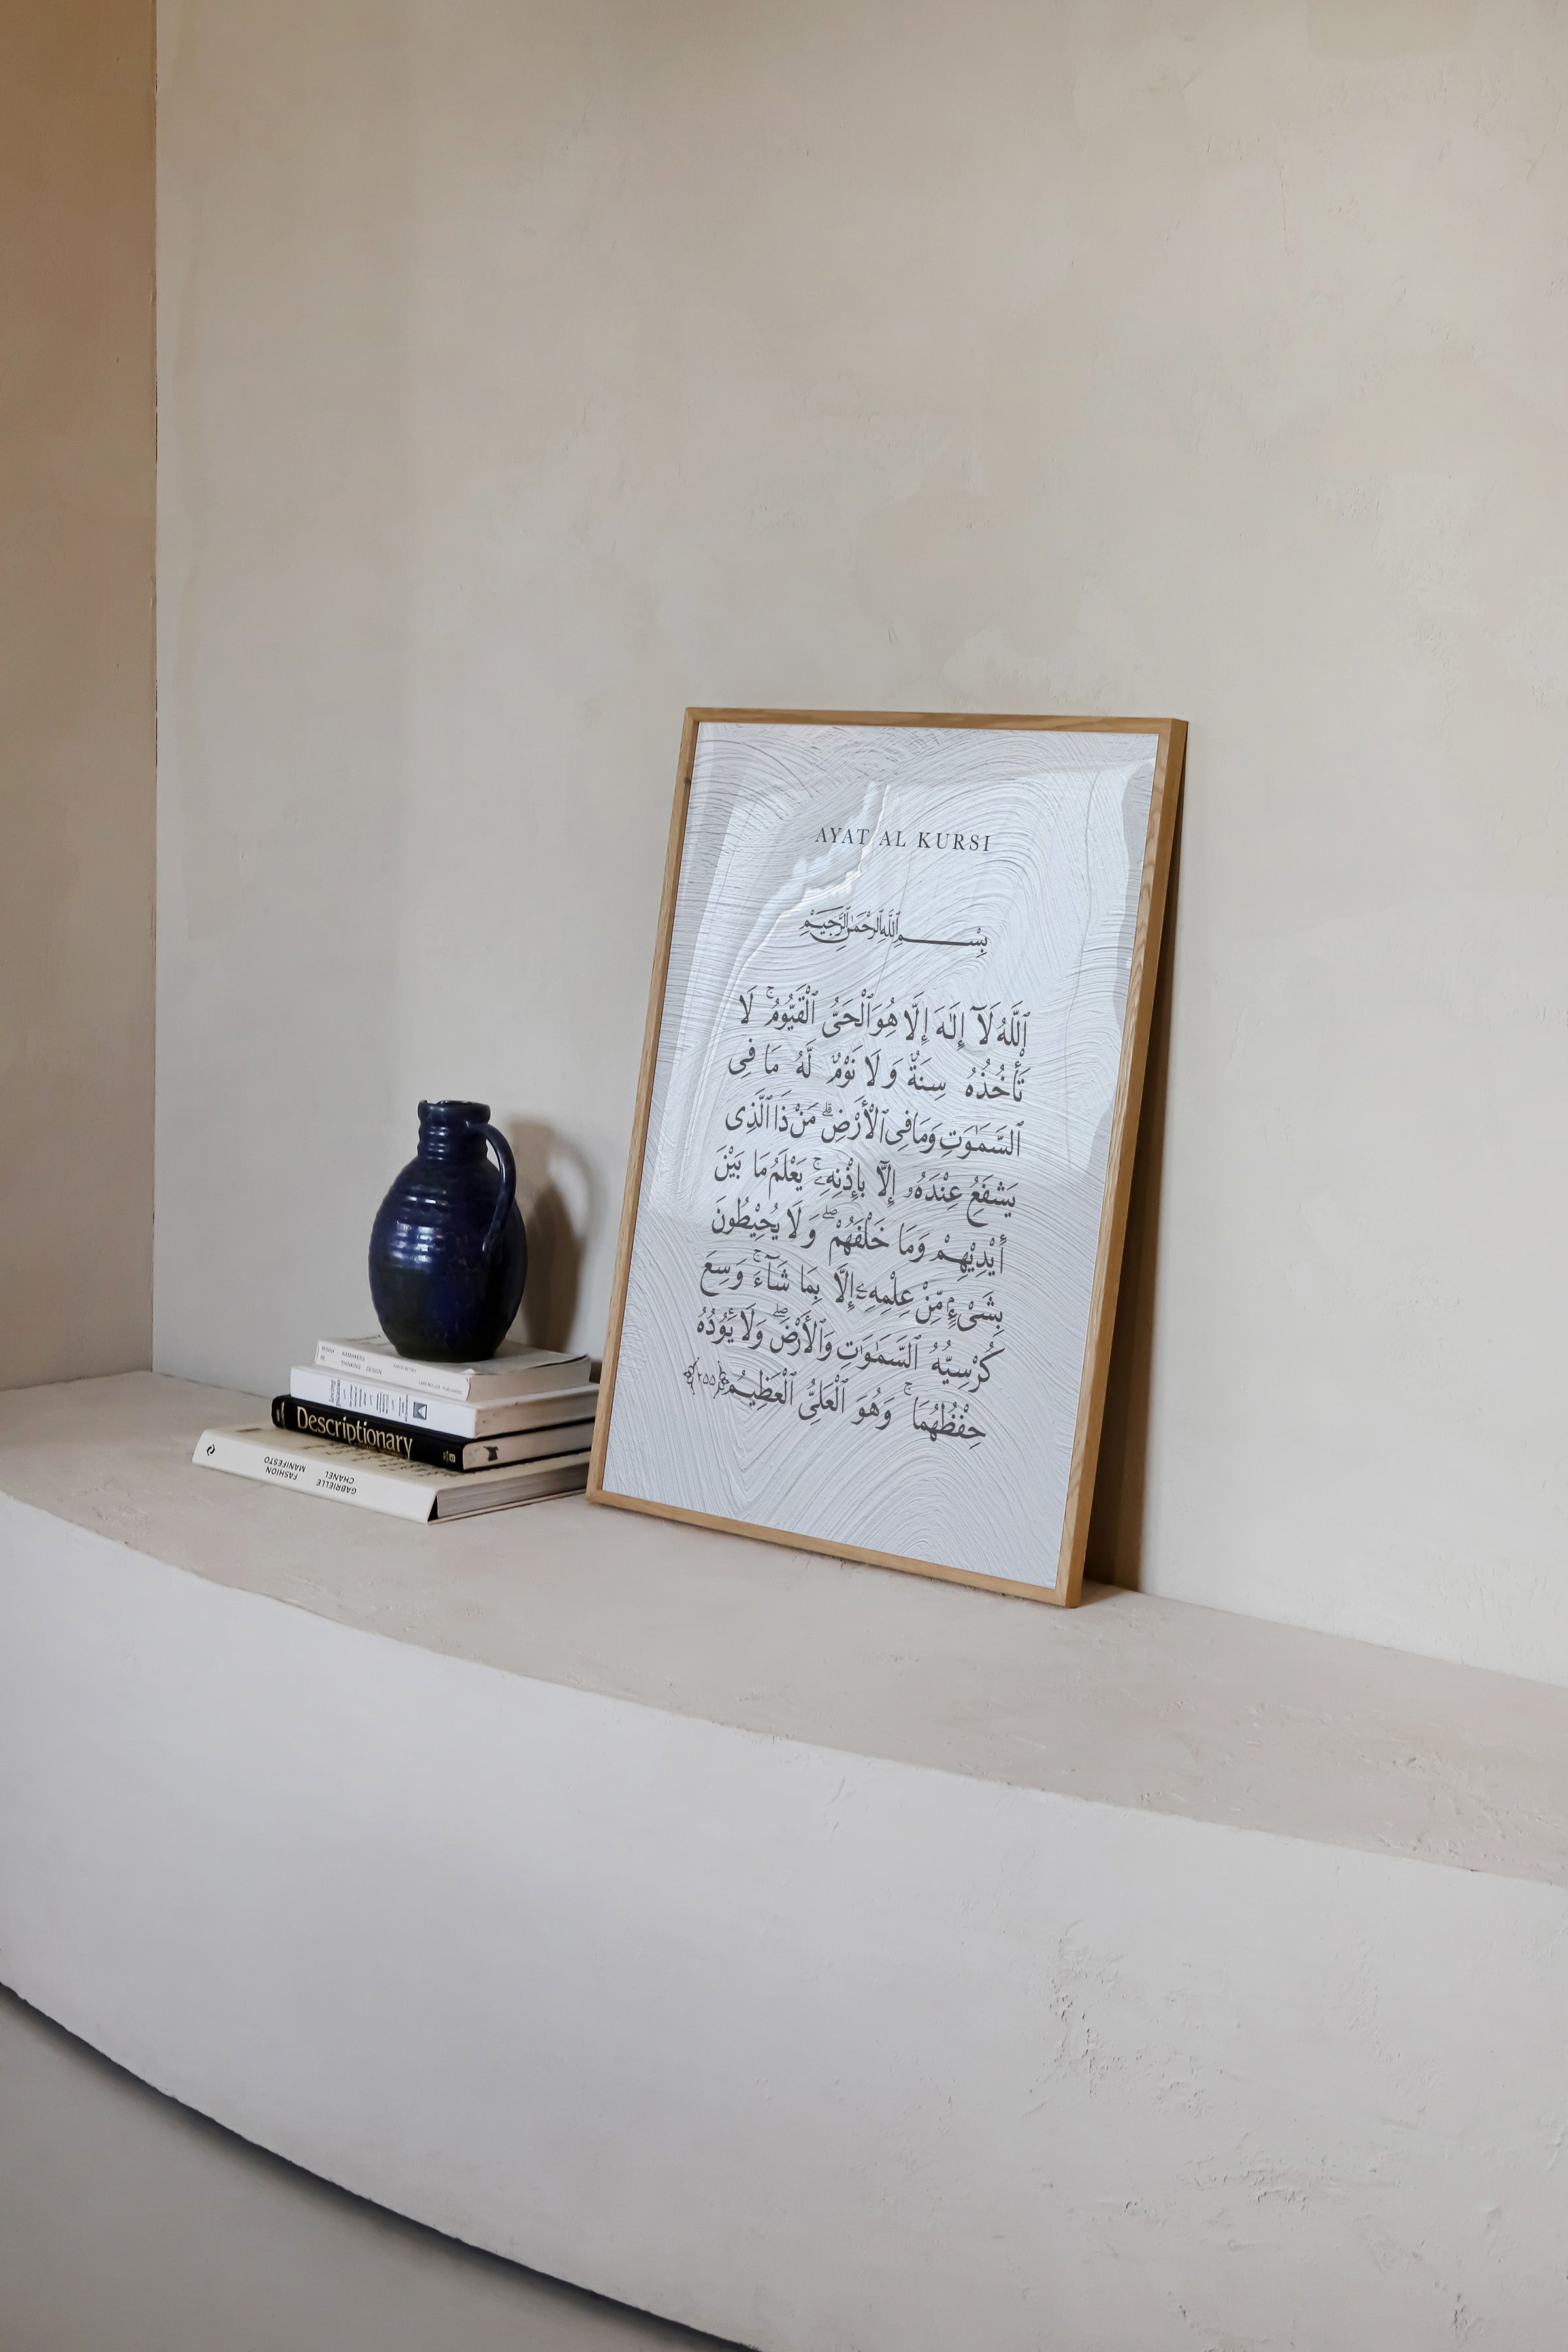 AYAT AL KURSI
بِسْــــــمِ ٱللَّهِ ٱلرَّحْمَٰنِ ٱلرَّحِيْمِ
ٱللَّهُ لَآ إِلَٰهَ إِلَّا هُوَ ٱلْحَىُّ ٱلْقَيُّومُ ۚ لَا
تَأْخُذُهُ سِنَةٌ وَلَا نَوْمٌ لَّهُ مَا فِى
ٱلسَّمَٰوَٰتِ وَمَا فِى ٱلْأَرْضِ ۗ مَنْ ذَا ٱلَّذِى
يَشْفَعُ عِنْدَهُۥ إِلَّا بِإِذْنِهِۦ ۚ يَعْلَمُ مَا بَيْنَ
أَيْدِيْهِمْ وَمَا خَلْفَهُمْ ۖ وَلَا يُحِيْطُونَ
بِشَىْءٍ مِّنْ عِلْمِهِۦٓ إِلَّا بِمَا شَآءَ ۚ وَسِعَ
كُرْسِيُّهُ ٱلسَّمَٰوَٰتِ وَٱلْأَرْضَ ۖ وَلَا يَـُٔودُهُ
حِفْظُهُمَا ۚ وَهُوَ ٱلْعَلِىُّ ٱلْعَظِيْمُ ﴿٢٥٥﴾
Descriptionary
GABRIELLE CHANEL
FASHION MANIFESTO